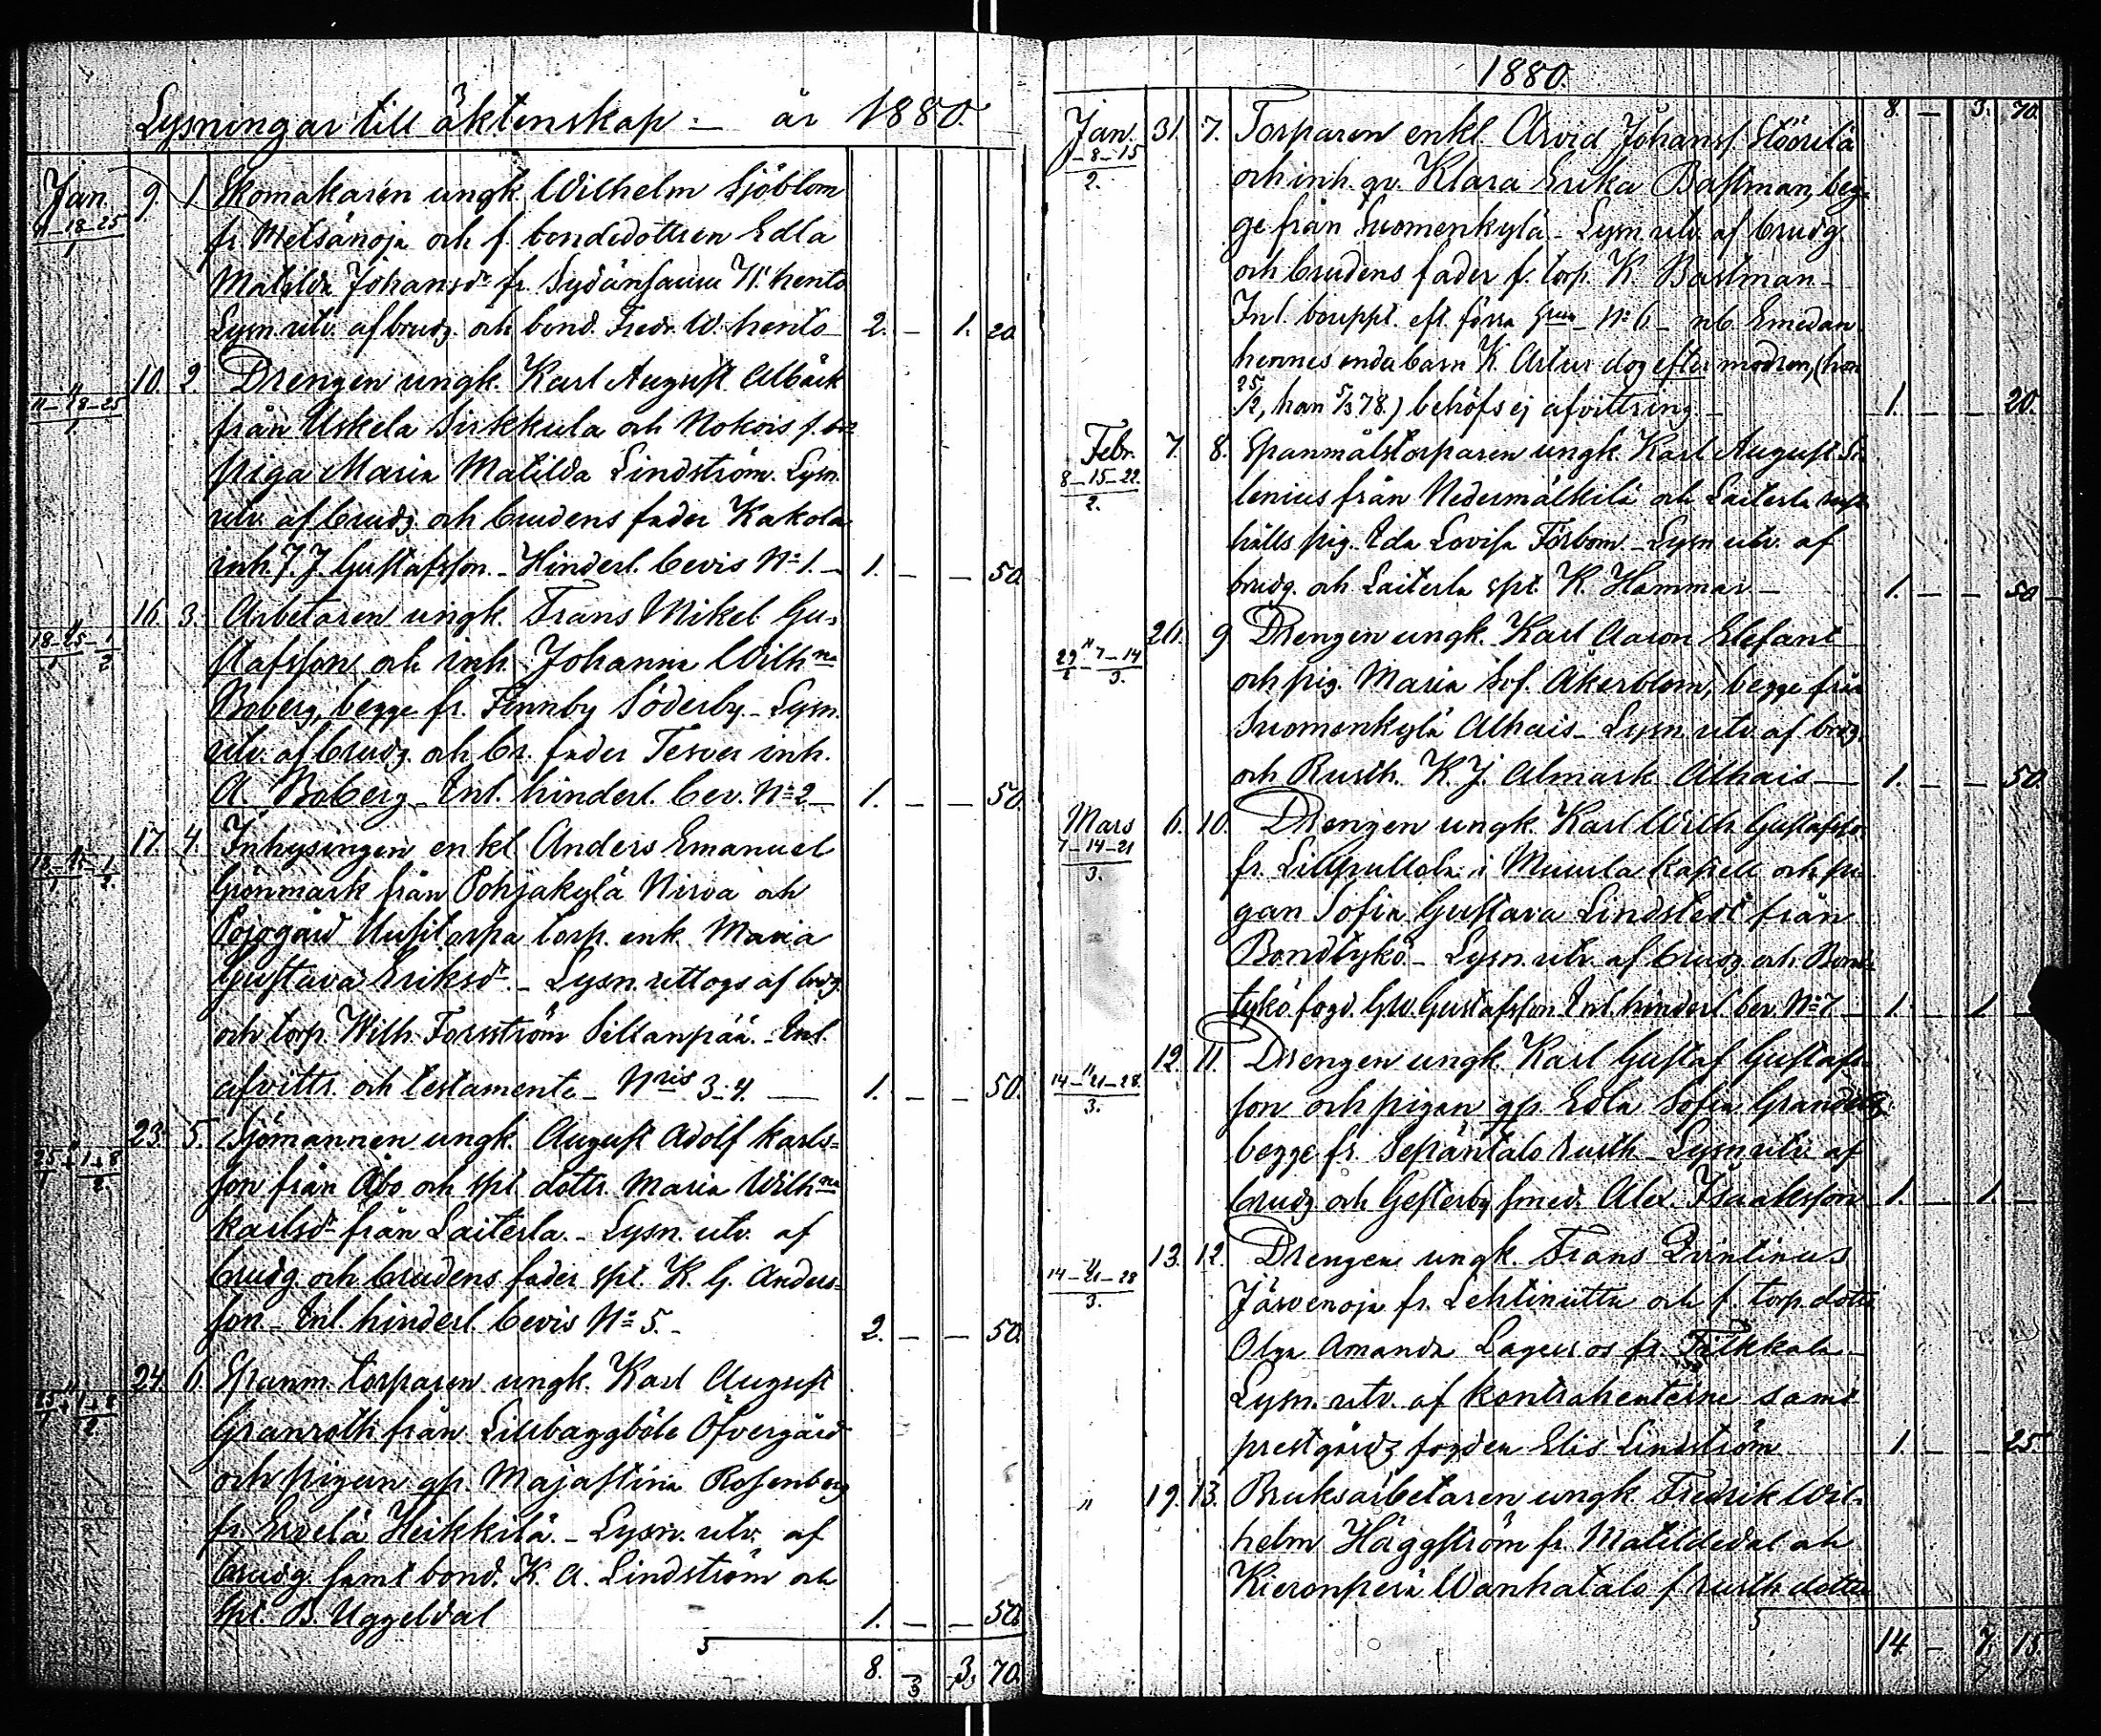 Lysningar till äktenskap — år 1880.
Jan. 9. 1. Skomakaren ungk. Wilhelm Sjöblom
11-18-25/1 fr. Metsänoja och f. bondedottren Edla
Matilda Johansdr fr.
Lysn. utv. af brudg. och bond. Fredr. W. 2. — 1. 20
" 10. 2. Drengen ungk. Karl August Albäck
11-18-25/1 från Uskela Sirkkula och Nokois f.
piga Maria Matilda Lindström. Lysn.
utv. af brudg. och brudens fader Kakola
inh. J. J. Gustafsson. — Hinderl. bevis No 1. — 1. — — 50.
" 16. 3. Arbetaren ungk. Frans Mikel Gu-
18-25/1-1/2 stafsson och inh. Johanna Wilhna
Boberg, begge fr. Finnby Söderby. — Lysn.
utv. af brudg. och br. fader Tesvor inh.
A. Boberg. Inl. hinderl. bev. No 2 — 1. — — 50.
" 17. 4. Inhysingen enkl. Anders Emanuel
18-25/1-1/2 Grönmark från Pohjakylä Nirva och
Pojogård Uusitorpa torp. enk. Maria
Gustava Eriksdr. — Lysn. uttogs af brdg.
och torp. Wilh. Forsström Siltanpää. — Inl.
afvittr. och testamente — Nris 3-4. — 1. — — 50.
" 23. 5. Sjömannen ungk. August Adolf Karls-
25/1+1+8/2 son från Åbo och spt. dottr. Maria Wilhna
Karlsdr från Laiterla. — Lysn. utv. af
brudg. och brudens fader spt. K. G. Anders-
son — Inl. hinderl. bevis No 5. — 2. — — 50.
" 24. 6. Spanm. torparen ungk. Karl August
25/1+1+8/2 Granroth från Lillbaggböle Öfvergård
och pigan gp. Majastina Rosenberg
fr. Ervelä Heikkilä. — Lysn. utv. af
brudg. samt bond. K. A. Lindström och
spt. B. Uggeldal 1. — — 50.
8. — 3. 70.
1880.
8. — 3. 70.
Jan. 31. 7. Torparen enkl. Arvid Johanss.
1-8-15/2. och inh. qv. Klara Erika Bastman, beg-
ge från Suomenkylä — Lysn. utv. af brudg.
och brudens fader f. torp. K. Bastman —
Inl. bouppt. eft. förra — No 6 — nb. Emedan
hennes enda barn K. Artur dog efter modren, (hon
25/2, han 5/3 78.) behöfs ej afvittring. — 1. — — 20.
Febr. 7. 8. Spanmålstorparen ungk. Karl August Se-
8-15-22./2. lenius från Nedermälkilä och Laiterla rust-
hålls pig. Ida Lovisa Forbom — Lysn. utv. af
brudg. och Laiterla spt. K. Hammar — 1. — — 50
" 26. 9. Drengen ungk. Karl Aaron Elefant
29/2-7-14/3. och pig. Maria Sof. Åkerblom, begge från
Suomenkylä Alhais — Lysn. utv. af brdg.
och Rusth. K. J. Almark Alhais — 1. — — 50.
Mars 6. 10. Drengen ungk. Karl Wilh. Gustafsson
7-14-21/3. fr. Lillpullola i Muurla kapell och pi-
gan Sofia Gustava Lindstedt från
Bondtykö — Lysn. utv. af brudg. och Bond-
tykö fogd. G. W. Gustafsson. Inl. hinderl. bev. No 7 — 1. — 1. —
" 12. 11. Drengen ungk. Karl Gustaf Gustafs-
14-21-28./3. son och pigan gp. Edla Sofia
begge fr. Sepäntalo rusth. — Lysn. utv. af
brudg. och Gesterby smed. Alex. Isaaksson 1. — 1. —
" 13. 12. Drengen ungk. Frans Qvintinus
14-21-28/3. Järvenoja fr. Lehtiniittu och f. torp. dottr
Olga Amanda Lagus os fr. —
Lysn. utv. af kontrahenterne samt
prestgårds fogden Elis Lindström 1. — — 25.
" 19. 13. Bruksarbetaren ungk. Fredrik Wil-
helm Häggström fr. Matildedal och
Kieronperä Wanhatalo f. rusth. dottr
14 — 7. 15.